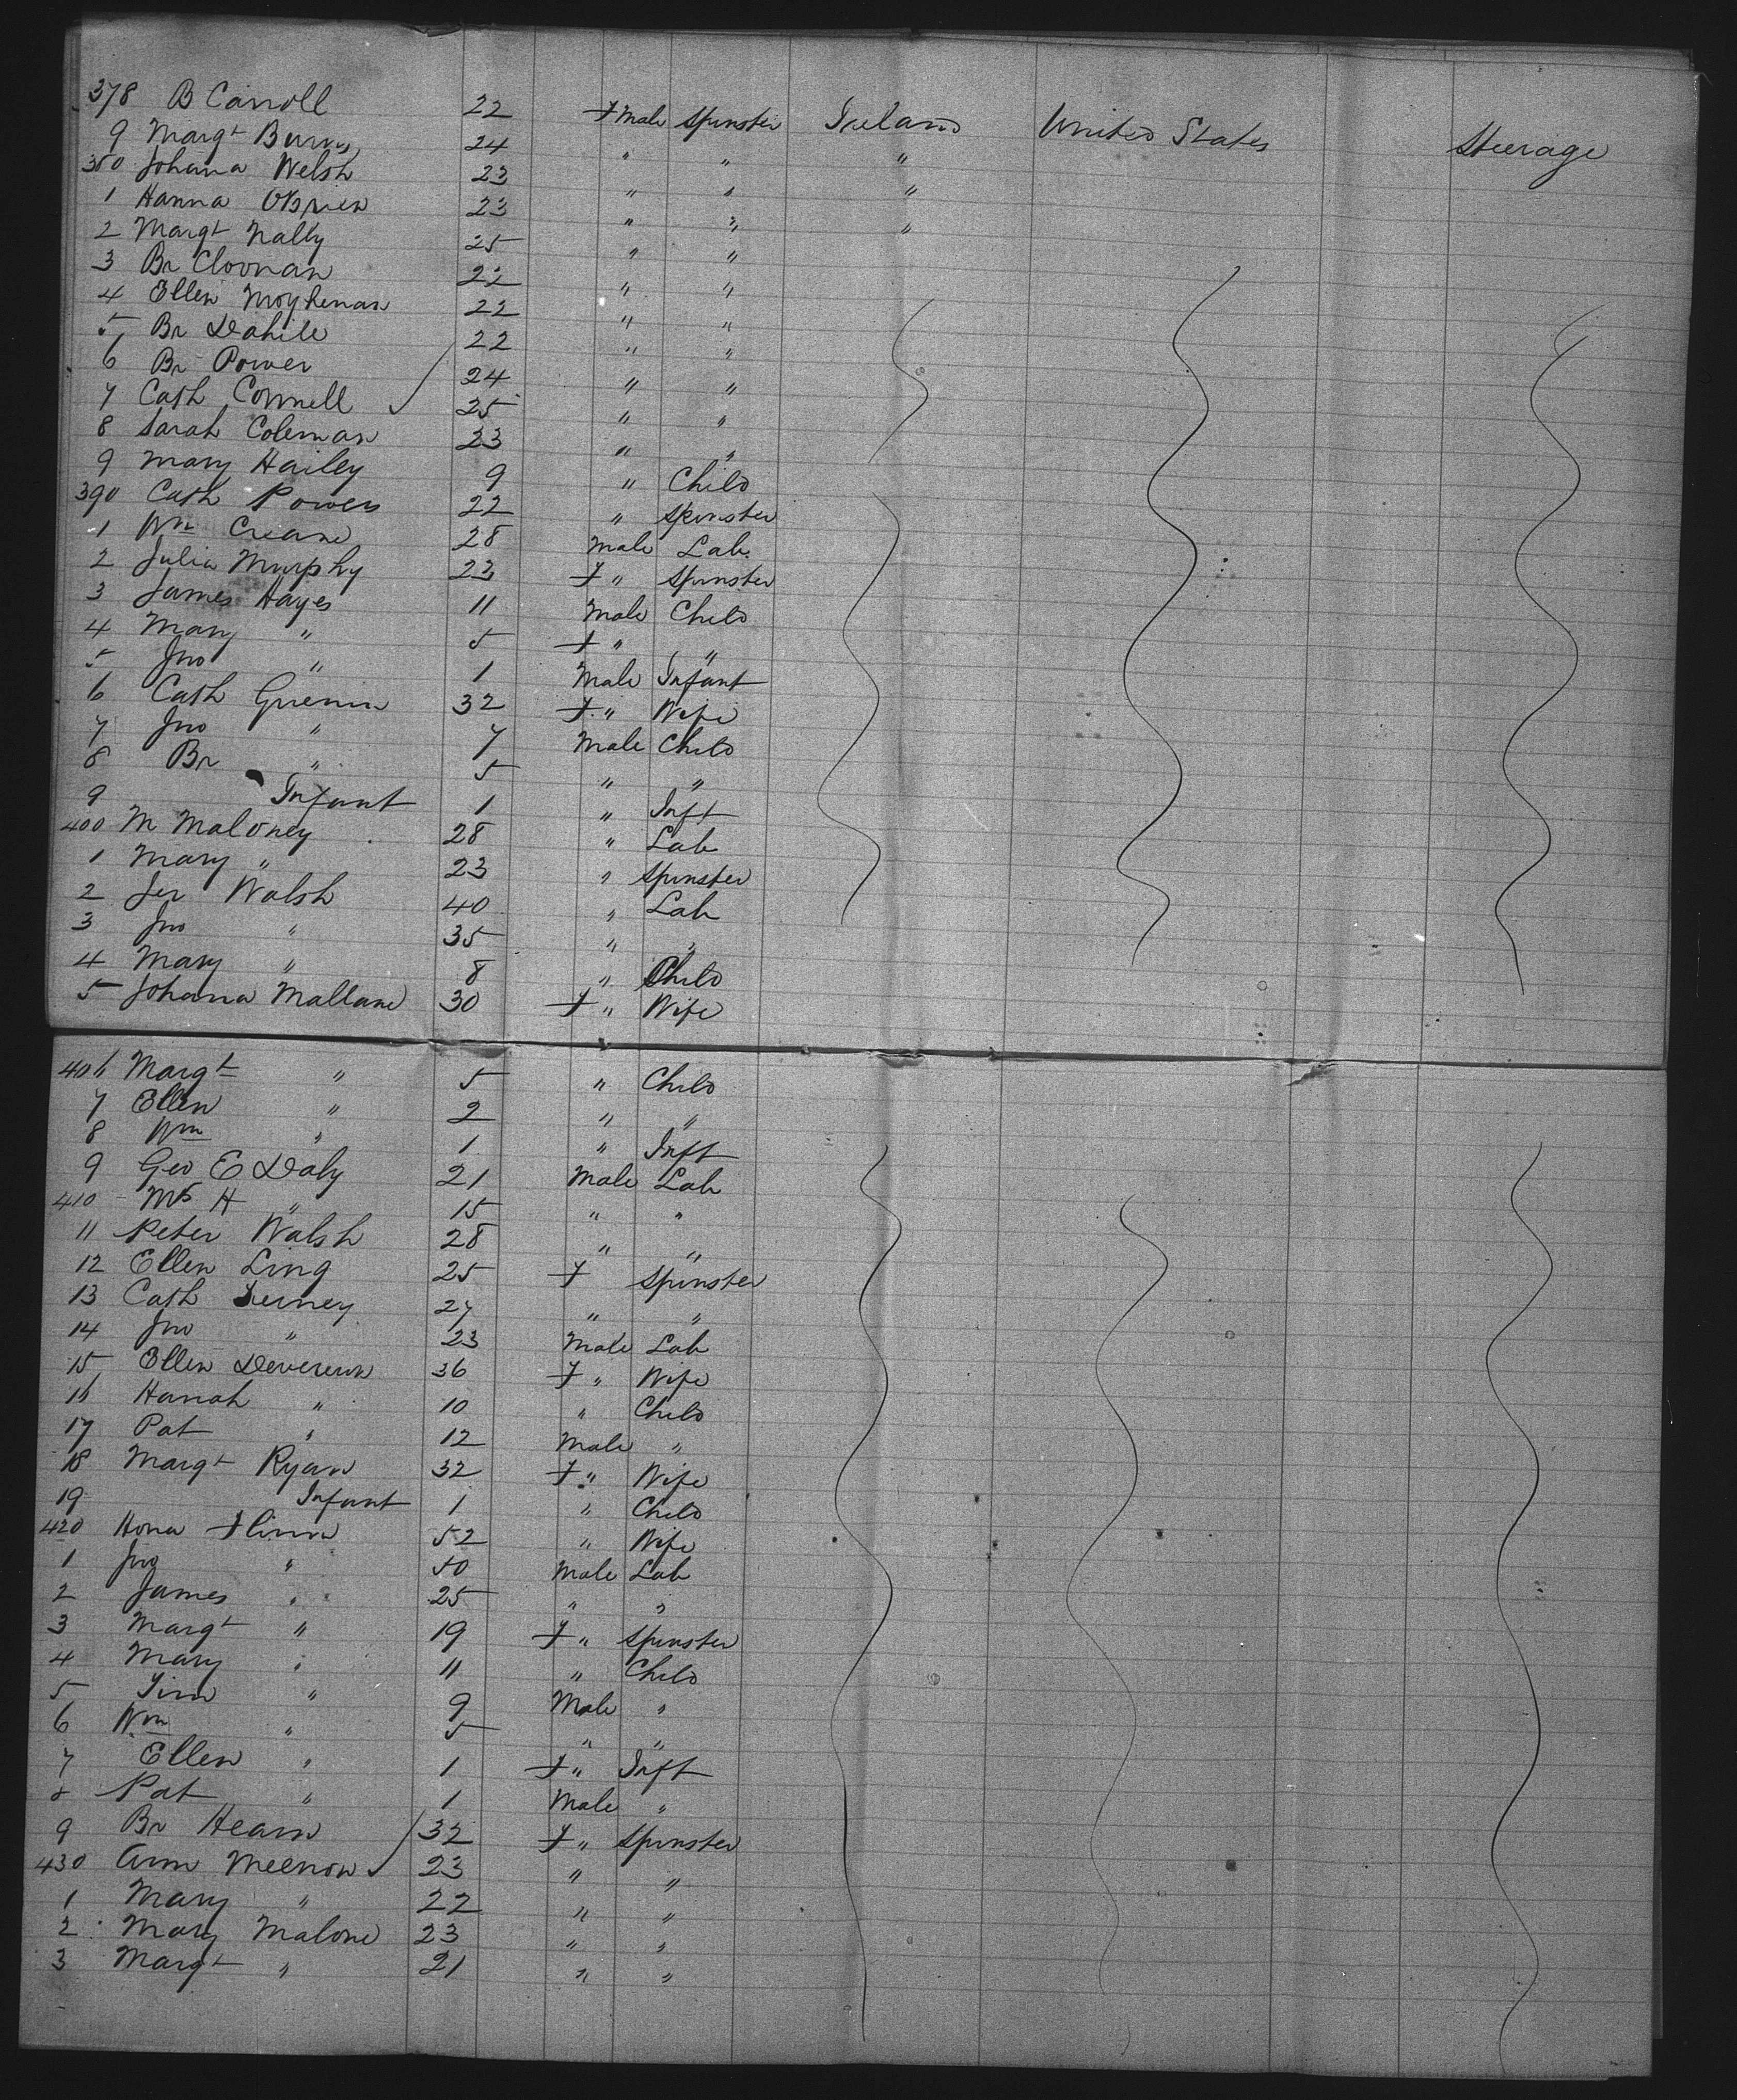 378 B Carroll 22 Fmale Spinster Ireland United States Steerage
9 Margt Burns 24 " " "
380 Johana Welsh 23 " " "
1 Hanna OBrien 23 " " "
2 Margt Nally 25 " "
3 Br Cloonan 22 " "
4 Ellen Moyhenan 22 " "
5 Br Dahile 22 " "
6 Br Power 24 " "
7 Cath Connell 25 " "
8 Sarah Coleman 23 " "
9 Mary Hailey 9 " Child
390 Cath Powers 22 " Spinster
1 Wm Creane 28 Male Lab
2 Julia Murphy 23 F " Spinster
3 James Hayes 11 Male Child
4 Mary " 5 F " "
5 Jno " 1 Male Infant
6 Cath Grenin 32 F " Wife
7 Jno " 7 Male Child
8 Br " 5 " "
9 Infant 1 " Inft
400 M Maloney 28 " Lab
1 Mary " 23 " Spinster
2 Jer Walsh 40 " Lab
3 Jno " 35 " "
4 Mary " 8 " Child
5 Johana Mallane 30 F " Wife
406 Margt " 5 " Child
7 Ellen " 2 " "
8 Wm " 1 " Inft
9 Geo E Daly 21 Male Lab
410 H " 15 " "
11 Peter Walsh 28 " "
12 Ellen Ling 25 F Spinster
13 Cath 27 " "
14 Jno " 23 Male Lab
15 Ellen Devereux 36 F " Wife
16 Hanah " 10 " Child
17 Pat " 12 Male "
18 Margt Ryan 32 F " Wife
19 Infant 1 " Child
420 Hona Flinn 52 " Wife
1 Jno " 50 Male Lab
2 James " 25 " "
3 Margt " 19 F " Spinster
4 Mary " 11 " Child
5 Tim " 9 Male "
6 Wm " 5 " "
7 Ellen " 1 F " Inft
8 Pat " 1 Male "
9 Br Hearn 32 F " Spinster
430 Ann 23 " "
1 Mary " 22 " "
2 Mary Malone 23 " "
3 Margt " 21 " "